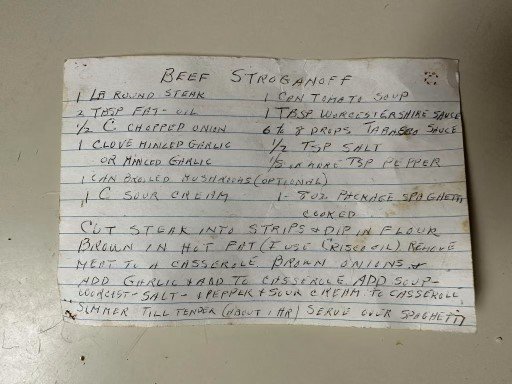 BEEF STROGANOFF
1 LB ROUND STEAK 1 CAN TOMATO SOUP
2 TBSP FAT - OIL 1 TBSP WORCESTERSHIRE SAUCE
1/2 C CHOPPED ONION 6 to 8 DROPS TABASCO SAUCE
1 CLOVE MINCED GARLIC 1/2 TSP SALT
OR MINCED GARLIC 1/8 TSP PEPPER
1 CAN BROILED MUSHROOMS (OPTIONAL)
1 C SOUR CREAM 1 - 8 OZ PACKAGE SPAGHETTI
COOKED
CUT STEAK INTO STRIPS & DIP IN FLOUR
BROWN IN HOT FAT (I USE CRISCO OIL) REMOVE
MEAT TO A CASSEROLE. BROWN ONIONS &
ADD GARLIC & ADD TO CASSEROLE ADD SOUP -
WORCEST - SALT - PEPPER & SOUR CREAM TO CASSEROLL
SIMMER TILL TENDER (ABOUT 1 HR) SERVE OVER SPAGHETTI